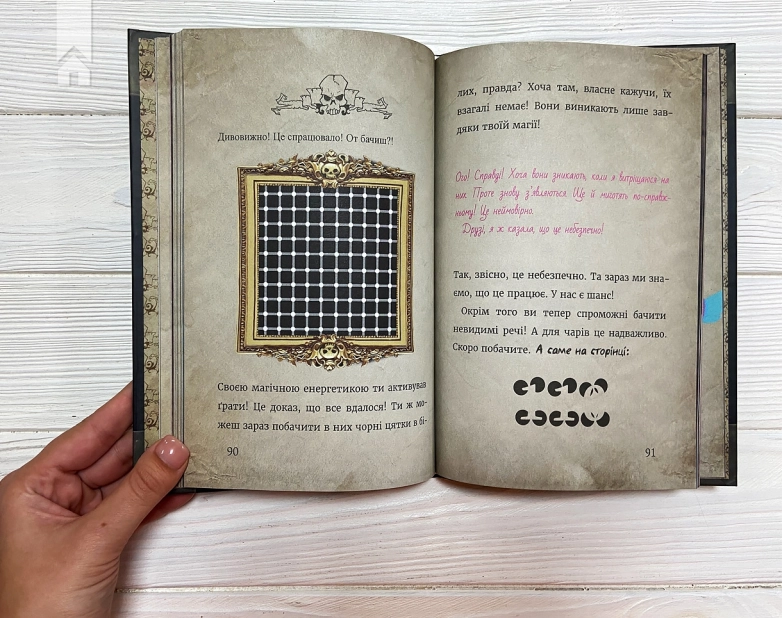 Дивовижно! Це спрацювало! От бачиш?!
Своєю магічною енергетикою ти активував
ґрати! Це доказ, що все вдалося! Ти ж мо-
жеш зараз побачити в них чорні цятки в бі-
90
лих, правда? Хоча там, власне кажучи, їх
взагалі немає! Вони виникають лише зав-
дяки твоїй магії!
Ого! Справді! Хоча вони зникають, коли я витріщаюся на
них. Проте знову з'являються. Ще й миготять по-справж-
ньому! Це неймовірно.
Друзі, я ж казала, що це небезпечно!
Так, звісно, це небезпечно. Та зараз ми зна-
ємо, що це працює. У нас є шанс!
Окрім того ви тепер спроможні бачити
невидимі речі! А для чарів це надважливо.
Скоро побачите. А саме на сторінці:
91